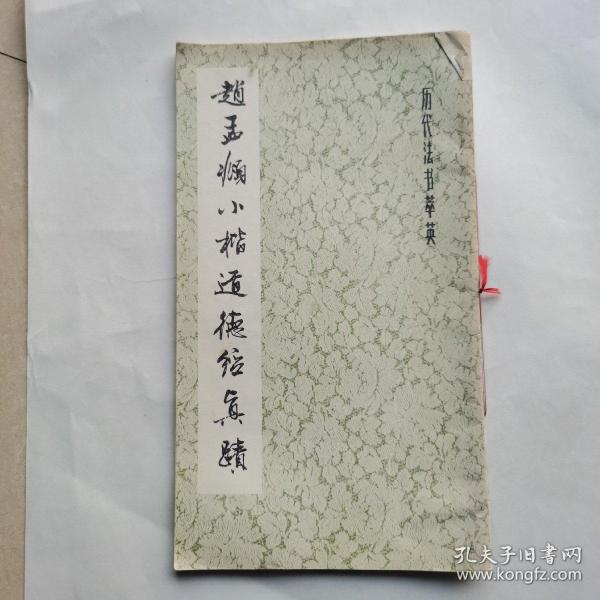 历代法书萃英
趙孟頫小楷道德經真蹟
孔夫子旧書网
www.kongfz.com